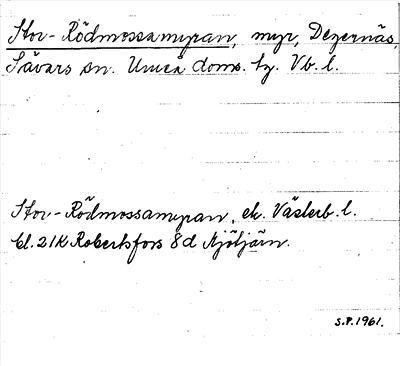 Stor-Rödmossamyran, myr, Degernäs,
Sävars sn. Umeå doms. tg. Vb. l.
Stor-Rödmossamyran, ek. Västerb. l.
bl. 21K Robertsfors 8d Njötjärn.
S.P. 1961.